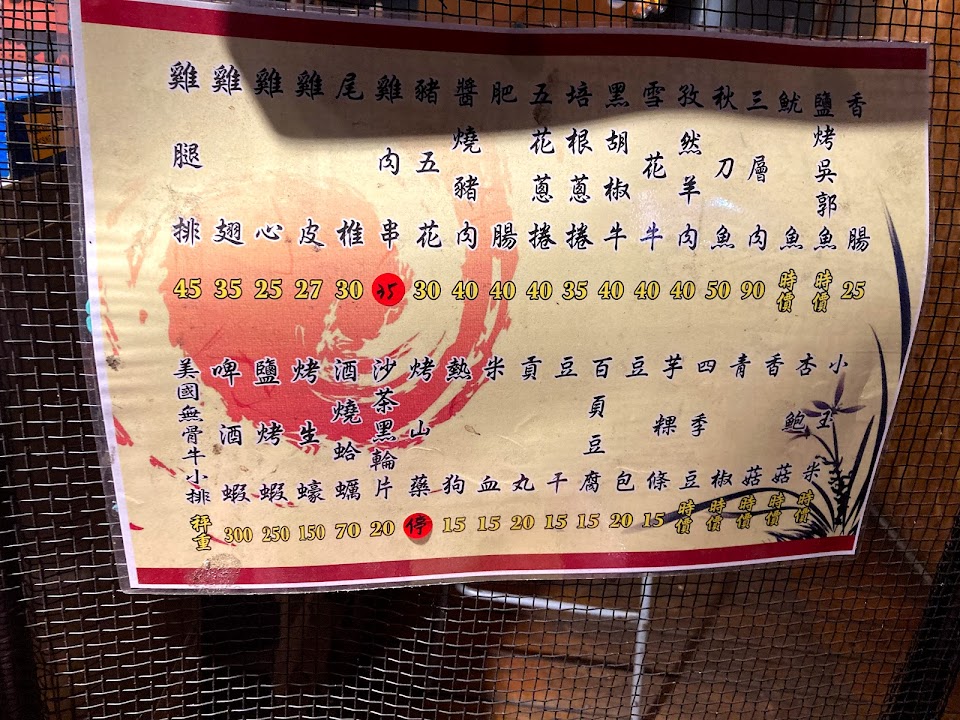 雞腿排 45
雞翅 35
雞心 25
雞皮 27
尾椎 30
雞肉串 35
豬五花 30
醬燒豬肉 40
肥腸 40
五花蔥捲 40
培根蔥捲 35
黑胡椒牛 40
雪花牛 40
孜然羊肉 40
秋刀魚 50
三層肉 90
魷魚 時價
鹽烤吳郭魚 時價
香腸 25
美國無骨牛小排 秤重
啤酒蝦 300
鹽烤蝦 250
烤生蠔 150
酒燒蛤蠣 70
沙茶黑輪片 20
烤山藥 停
熱狗 15
米血 15
貢丸 20
豆干 15
百頁豆腐 15
豆包 20
芋粿條 15
四季豆 時價
青椒 時價
香菇 時價
杏鮑菇 時價
小玉米 時價